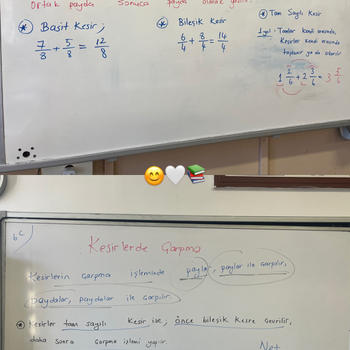 Ortak payda sonuca payda olarak
* Basit Kesir;
7/8 + 5/8 = 12/8
* Bileşik Kesir
6/4 + 8/4 = 14/4
* Tam Sayılı Kesir
1.yol: Tamlar kendi arasında,
Kesirler kendi arasında
toplanır ya da
1 2/6 + 2 3/6 = 3 5/6
6C
Kesirlerde Çarpma
Kesirlerin çarpma işleminde paylar, paylar ile çarpılır,
paydalar, paydalar ile çarpılır.
* Kesirler tam sayılı kesir ise, önce bileşik kesre çevrilir,
daha sonra çarpma işlemi yapılır.
Not